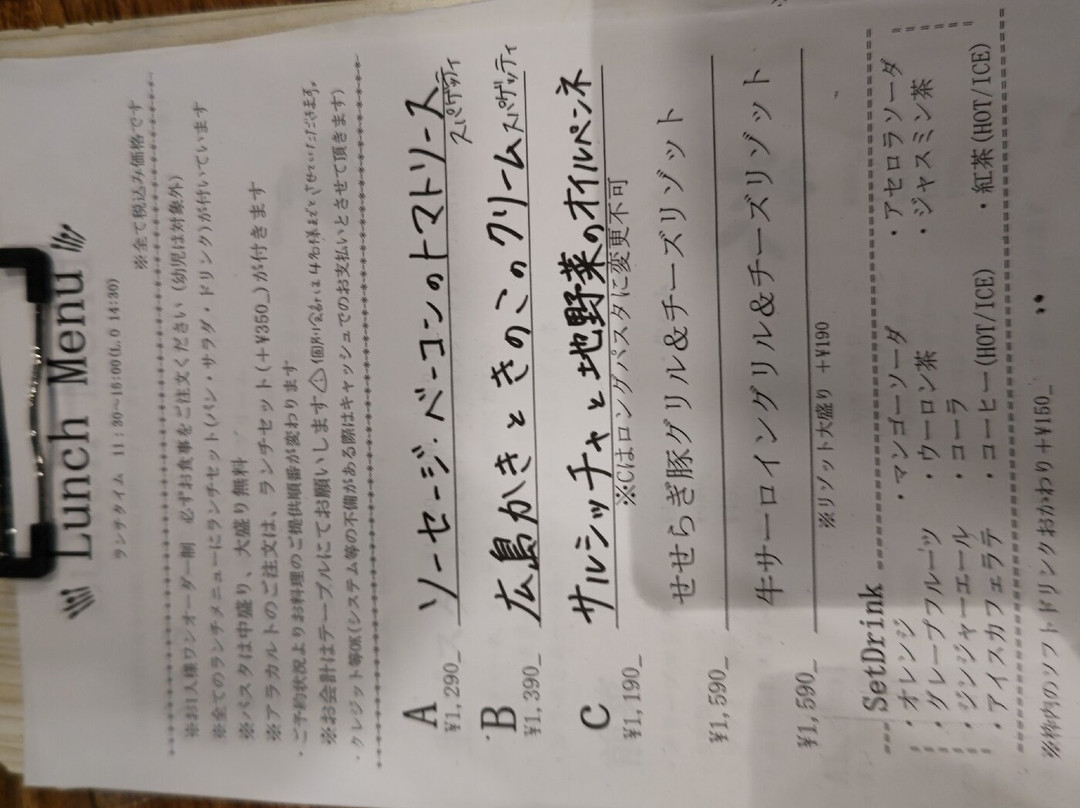 Lunch Menu
ランチタイム 11:30~15:00(L.O 14:30)
※全て税込み価格です
※お1人様ワンオーダー制 必ずお食事をご注文ください(幼児は対象外)
※全てのランチメニューにランチセット(パン・サラダ・ドリンク)が付いています
※パスタは中盛り、大盛り無料
※アラカルトのご注文は、ランチセット(+¥350_)が付きます
・ご予約状況よりお料理のご提供順番が変わります
※お会計はテーブルにてお願いします△(個別会計は4名様までとさせていただきます。
・クレジット等OK(システム等の不備がある際はキャッシュでのお支払いとさせて頂きます)
A ソーセージ・ベーコンのトマトソース スパゲッティ
¥1,290_
B 広島かきときのこのクリームスパゲッティ
¥1,390_
C サルシッチャと地野菜のオイルペンネ
¥1,190_ ※Cはロングパスタに変更不可
せせらぎ豚グリル&チーズリゾット
¥1,590_
牛サーロイングリル&チーズリゾット
¥1,590_
※リゾット大盛り +¥190
SetDrink
・オレンジ ・マンゴーソーダ ・アセロラソーダ
・グレープフルーツ ・ウーロン茶 ・ジャスミン茶
・ジンジャーエール ・コーラ
・アイスカフェラテ ・コーヒー(HOT/ICE) ・紅茶(HOT/ICE)
※枠内のソフトドリンクおかわり+¥150_